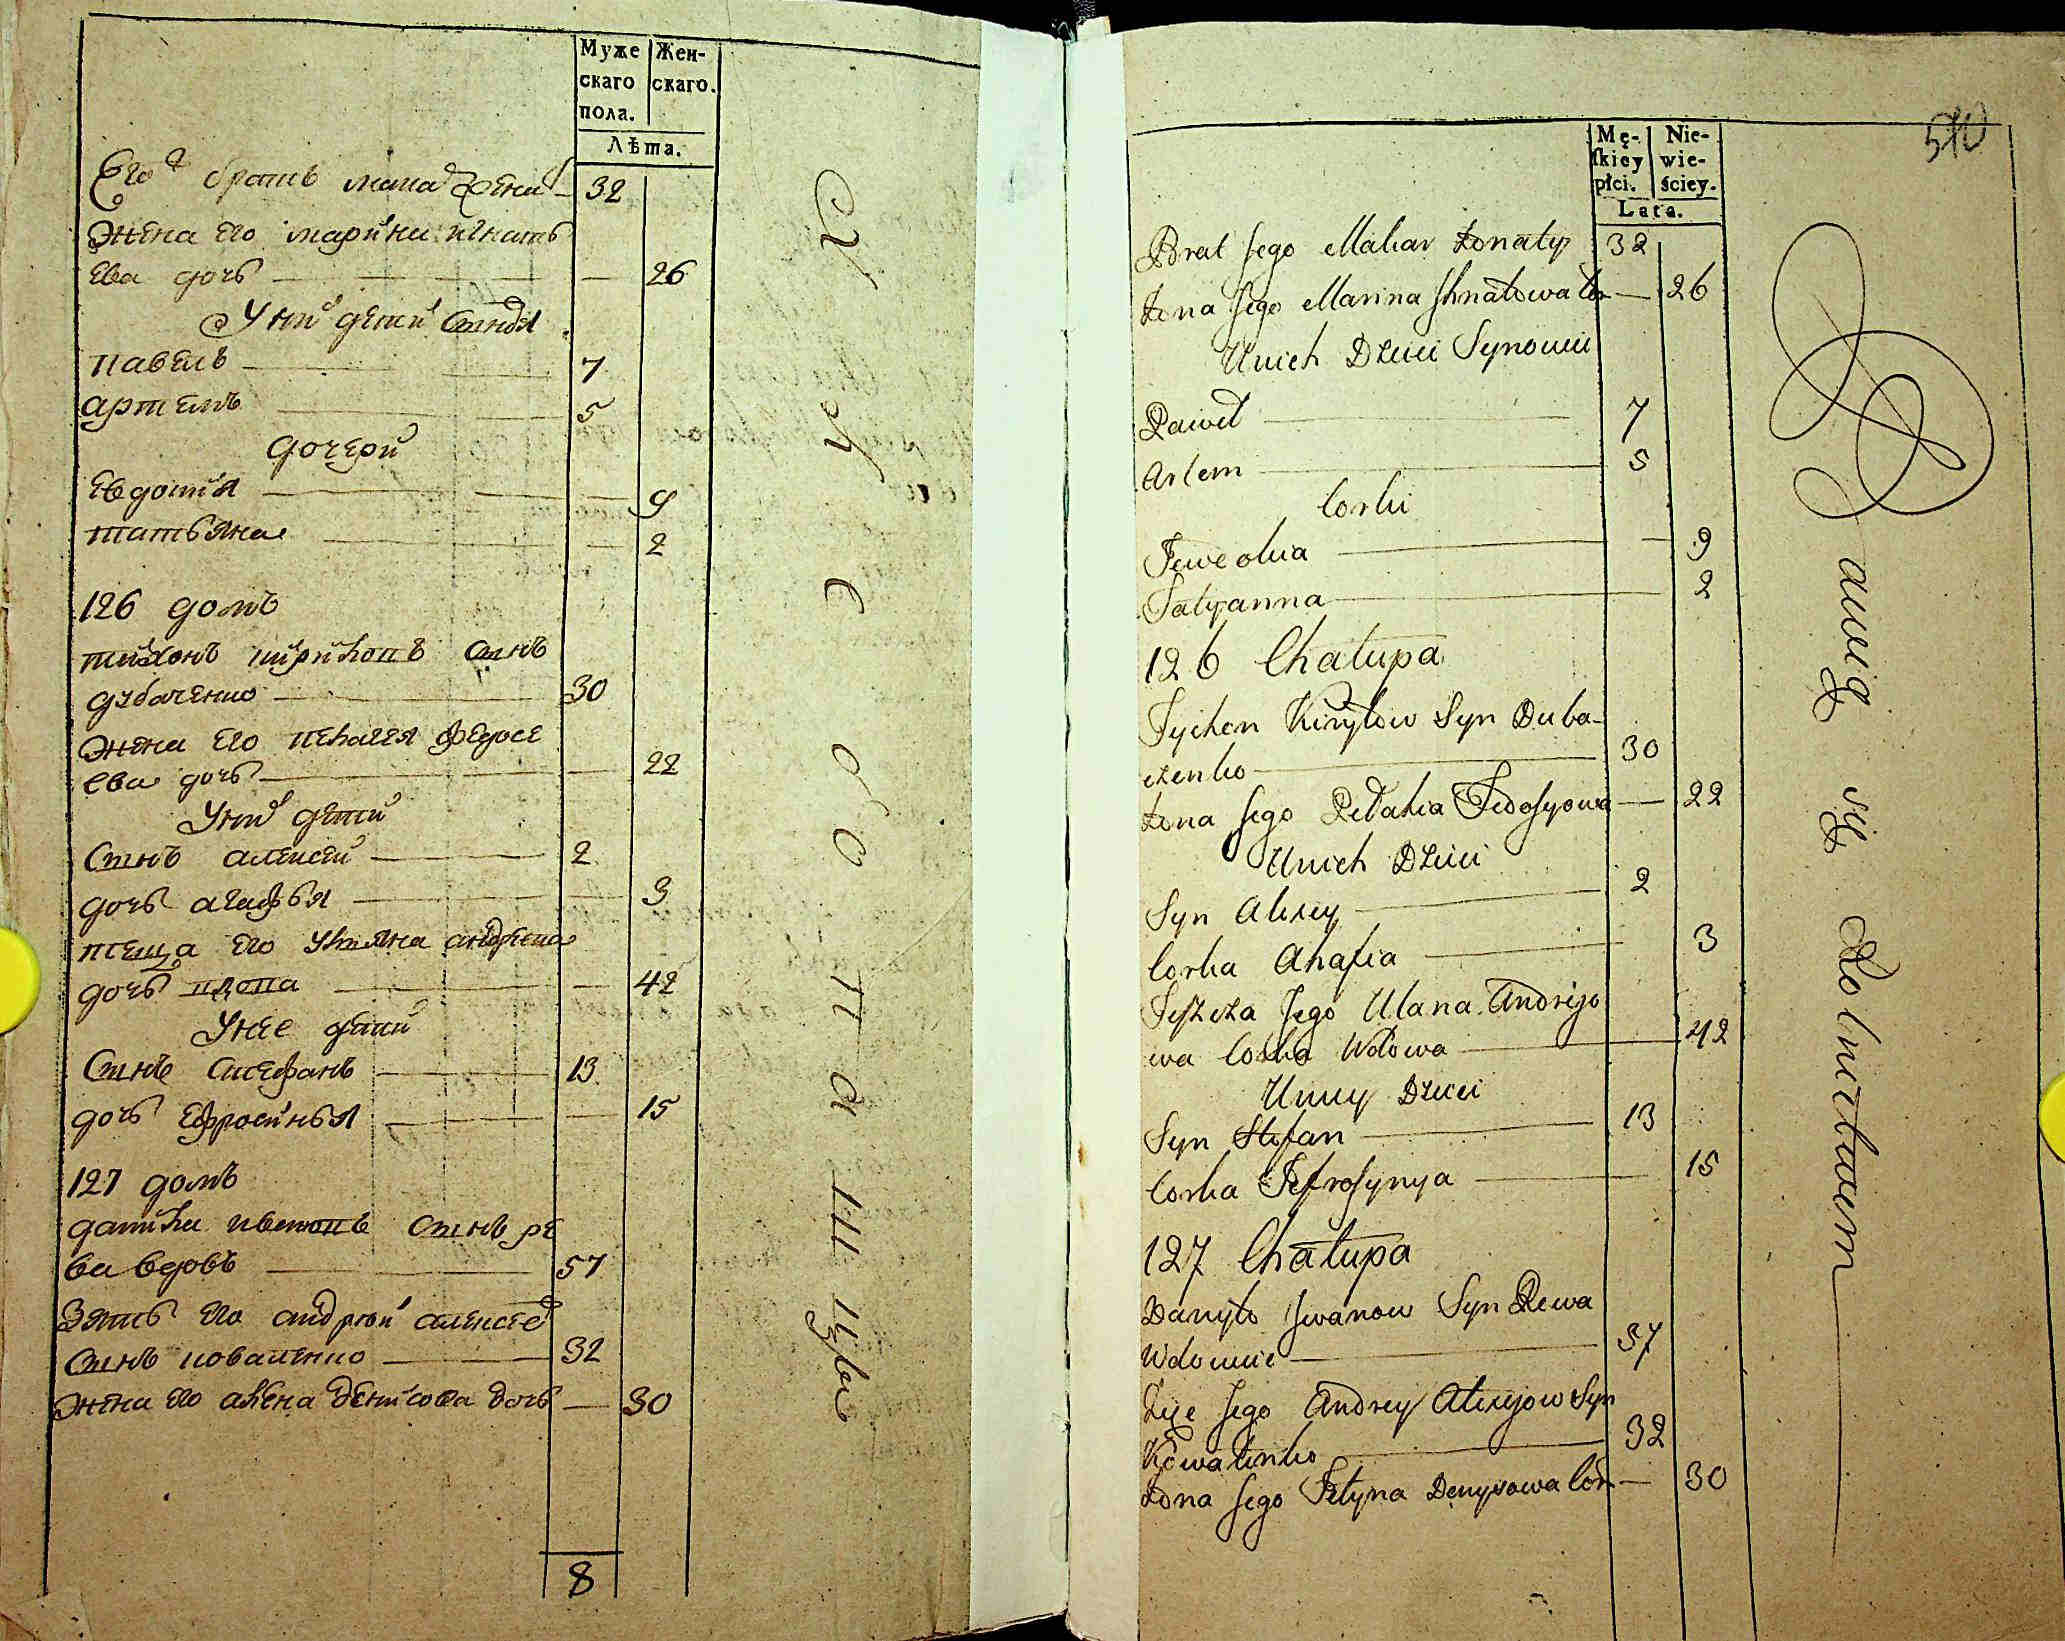 Муже
скаго
пола.
Жен-
скаго.
Лѣта.
Его братъ мака жена 32
жена его марина игнать
ева дочь 26
У них дети сыновя
павелъ 7
артемъ 5
дочери
евдотия 9
татьяна 2
126 домъ
тихонъ кириловъ сынъ
дубаченко 30
жена его пелагея федосе
ева дочь 22
У них дети
сынъ алексей 2
дочь агафья 3
теща его ульяна андреева
дочь вдова 42
У нее дети
сынъ стефанъ 13
дочь ефросинья 15
127 домъ
данила ивановъ сынъ ре
ва вдовъ 57
Зять его андрей алексеев
сынъ коваленко 32
жена его алена денисова дочь 30
8
Mę-
skiey
płci.
Nie-
wie-
ściey.
Lata.
510
Brat Jego Makar żonaty 32
żona Jego Marina Ihnatowa Cor 26
Unich Dzieci Synowie
Paweł 7
Artem 5
Corki
Jewdokia 9
Tatyanna 2
126 Chałupa
Tychon Kiryłow Syn Duba-
czenko 30
żona Jego Pełahia Fedosyowa 22
Unich Dzieci
Syn Alexey 2
Corka Ahafia 3
Teszcza Jego Ulana Andrijo
wa Corka Wdowa 42
Uniey Dzieci
Syn Stefan 13
Corka Jefrosynya 15
127 Chałupa
Danyło Iwanow Syn Rewa
Wdowiec 57
Zięć Jego Andrey Alexyow Syn
Kowalenko 32
żona Jego Denysowa Cor 30